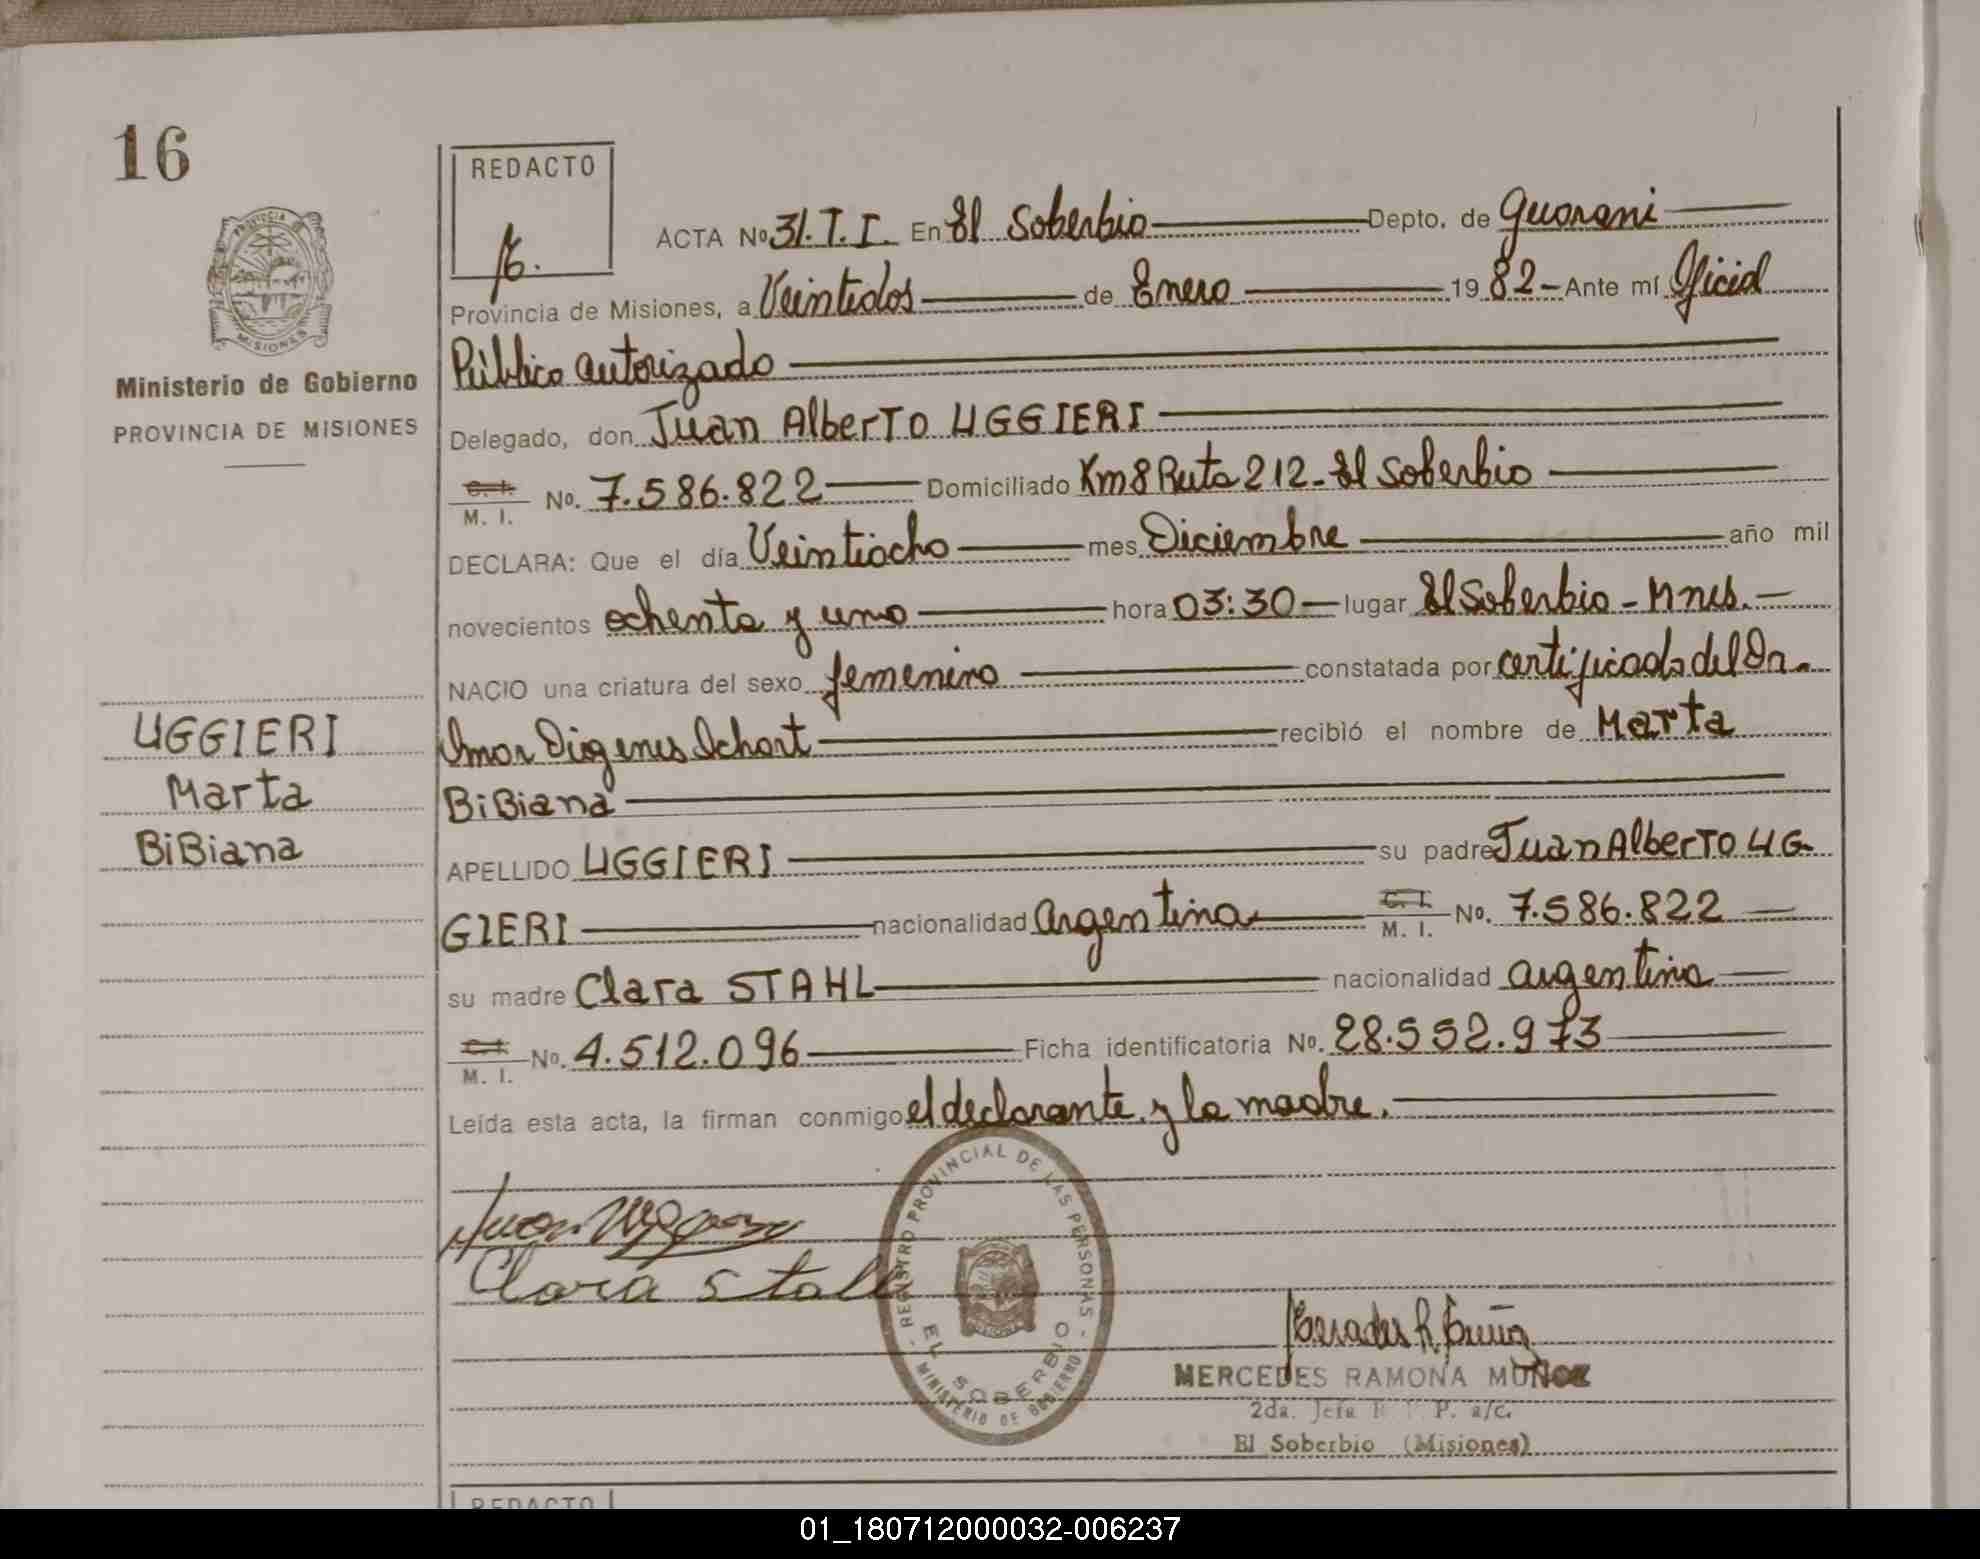 16
REDACTO
ACTA Nº 31.T.I. En El Soberbio Depto. de Guarani
Provincia de Misiones, a Veintidos de Enero 1982 - Ante mí Oficial
Público autorizado
Delegado, don Juan Alberto UGGIERI
C. I. M. I. No. 7.586.822 Domiciliado Km 8 Ruta 212 - El Soberbio
DECLARA: Que el día Veintiocho mes Diciembre año mil
novecientos ochenta y uno hora 03:30 lugar El Soberbio - Mnes.
NACIO una criatura del sexo femenino constatada por certificado del Dr.
Omar Diogenes recibió el nombre de Marta
BiBiana
APELLIDO UGGIERI su padre Juan Alberto UG-
GIERI nacionalidad argentina C. I. M. I. No. 7.586.822
su madre Clara STAHL nacionalidad argentina
C. I. M. I. No. 4.512.096 Ficha identificatoria No. 28.552.973
Leída esta acta, la firman conmigo el declarante y la madre.
PROVINCIA
MISIONES
Ministerio de Gobierno
PROVINCIA DE MISIONES
UGGIERI
Marta
BiBiana
Clara Stall
REGISTRO PROVINCIAL DE LAS PERSONAS
EL SOBERBIO
MINISTERIO DE GOBIERNO
MERCEDES RAMONA MUÑOZ
2da. Jefa P. a/c.
El Soberbio (Misiones)
REDACTO
01_180712000032-006237